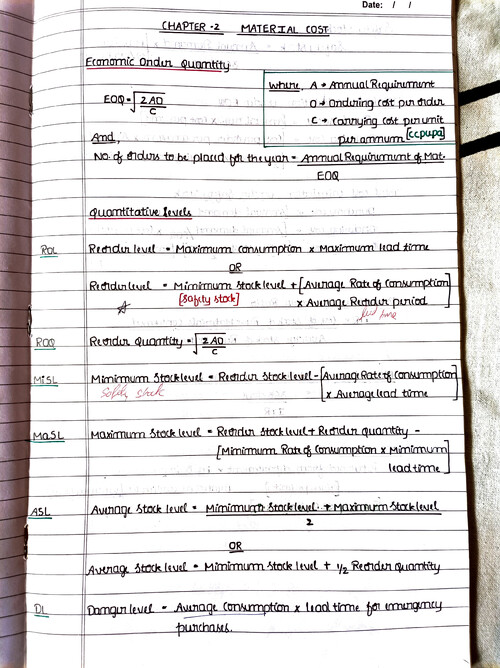 Date: / /
CHAPTER-2 MATERIAL COST
Economic Order Quantity
EOQ = √2AO/C
where, A → Annual Requirement
O → Ordering cost per order
C → Carrying cost per unit
per annum [ccpupa]
And,
No. of orders to be placed for the year = Annual Requirement of Mat.
EOQ
Quantitative levels
ROL Reorder level = Maximum consumption x Maximum lead time
OR
Reorder level = Minimum stock level + [Average Rate of consumption
[Safety stock] x Average Reorder period]
lead time
ROQ Reorder Quantity = √2AO/C
MiSL Minimum Stock level = Reorder Stock level - [Average Rate of consumption
Safety stock x Average lead time]
MaSL Maximum Stock level = Reorder Stock level + Reorder quantity -
[Minimum Rate of consumption x Minimum
lead time]
ASL Average Stock level = Minimum Stock level + Maximum Stock level
2
OR
Average Stock level = Minimum Stock level + 1/2 Reorder Quantity
DL Danger level = Average Consumption x lead time for emergency
purchases.